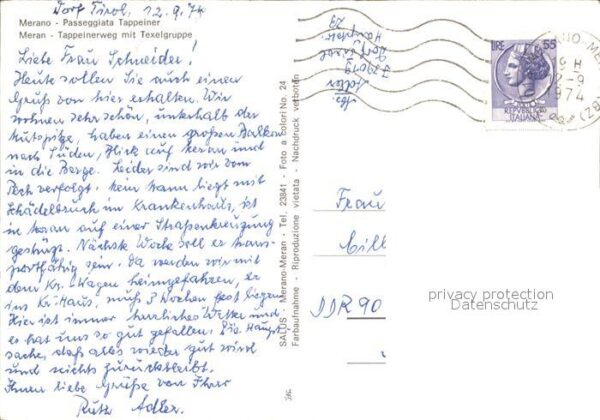 Dorf Tirol, 12.9.74
Merano - Passeggiata Tappeiner
Meran - Tappeinerweg mit Texelgruppe
Liebe Frau Schneider!
Heute sollen Sie auch einen
Gruß von hier erhalten. Wir
wohnen sehr schön, unterhalb der
Mutspitze, haben einen großen Balkon
nach Süden, Blick auf Meran und
in die Berge. Leider sind wir vom
Pech verfolgt. Mein Mann liegt mit
Schädelbruch im Krankenhaus, ist
in Meran auf einer Straßenkreuzung
gestürzt. Nächste Woche soll er trans-
portfähig sein. Da werden wir mit
dem Kr.-Wagen heimgefahren, er
ins Kr.-Haus, muß 3 Wochen fest liegen.
Hier ist immer herrliches Wetter und
es hat uns so gut gefallen. Die Haupt-
sache, daß alles wieder gut wird
und nichts zurückbleibt.
Ihnen liebe Grüße von Ihrer
Ruth Adler.
SALUS - Merano-Meran - Tel. 23841 - Foto a colori No. 24
Farbaufnahme - Riproduzione vietata - Nachdruck verboten
Abs.
Adler
LIRE 55
REPUBBLICA
ITALIANA
1974
Frau
Cill
DDR 90
privacy protection
Datenschutz